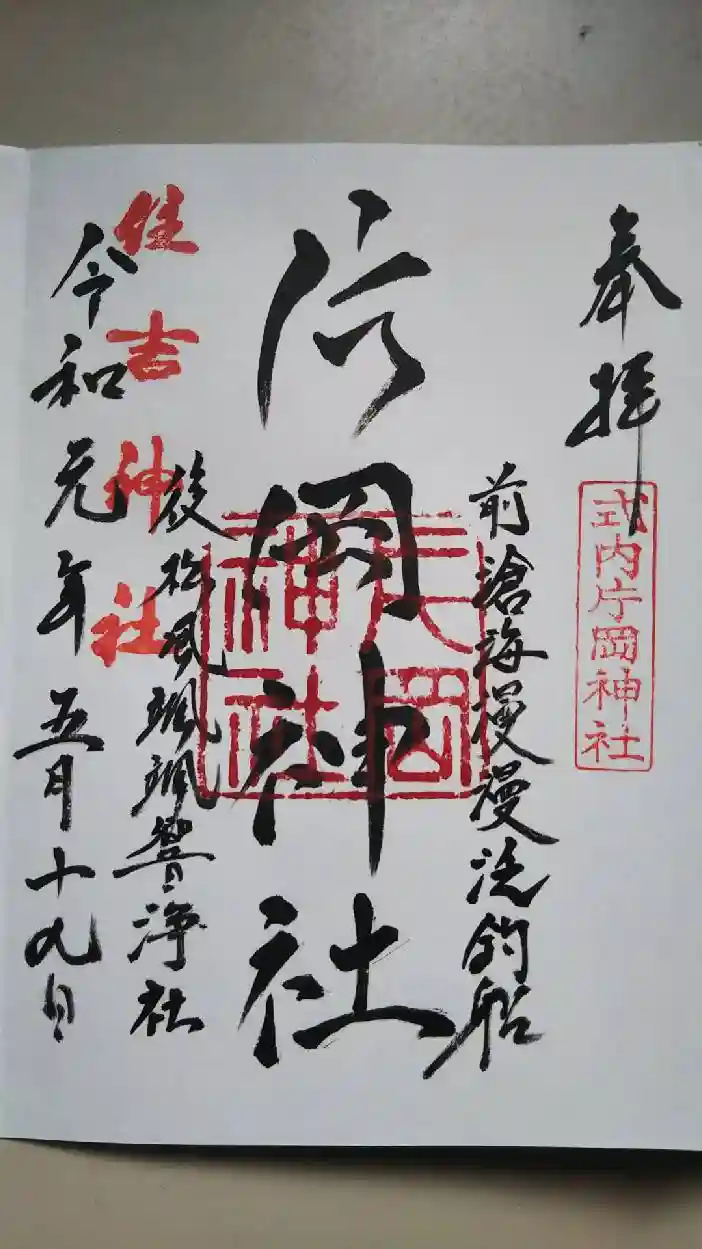 奉拝
式内片岡神社
前滄海漫漫泛釣船
片岡神社
片岡神社
後松風颯颯響浄社
住吉神社
令和元年五月十九日